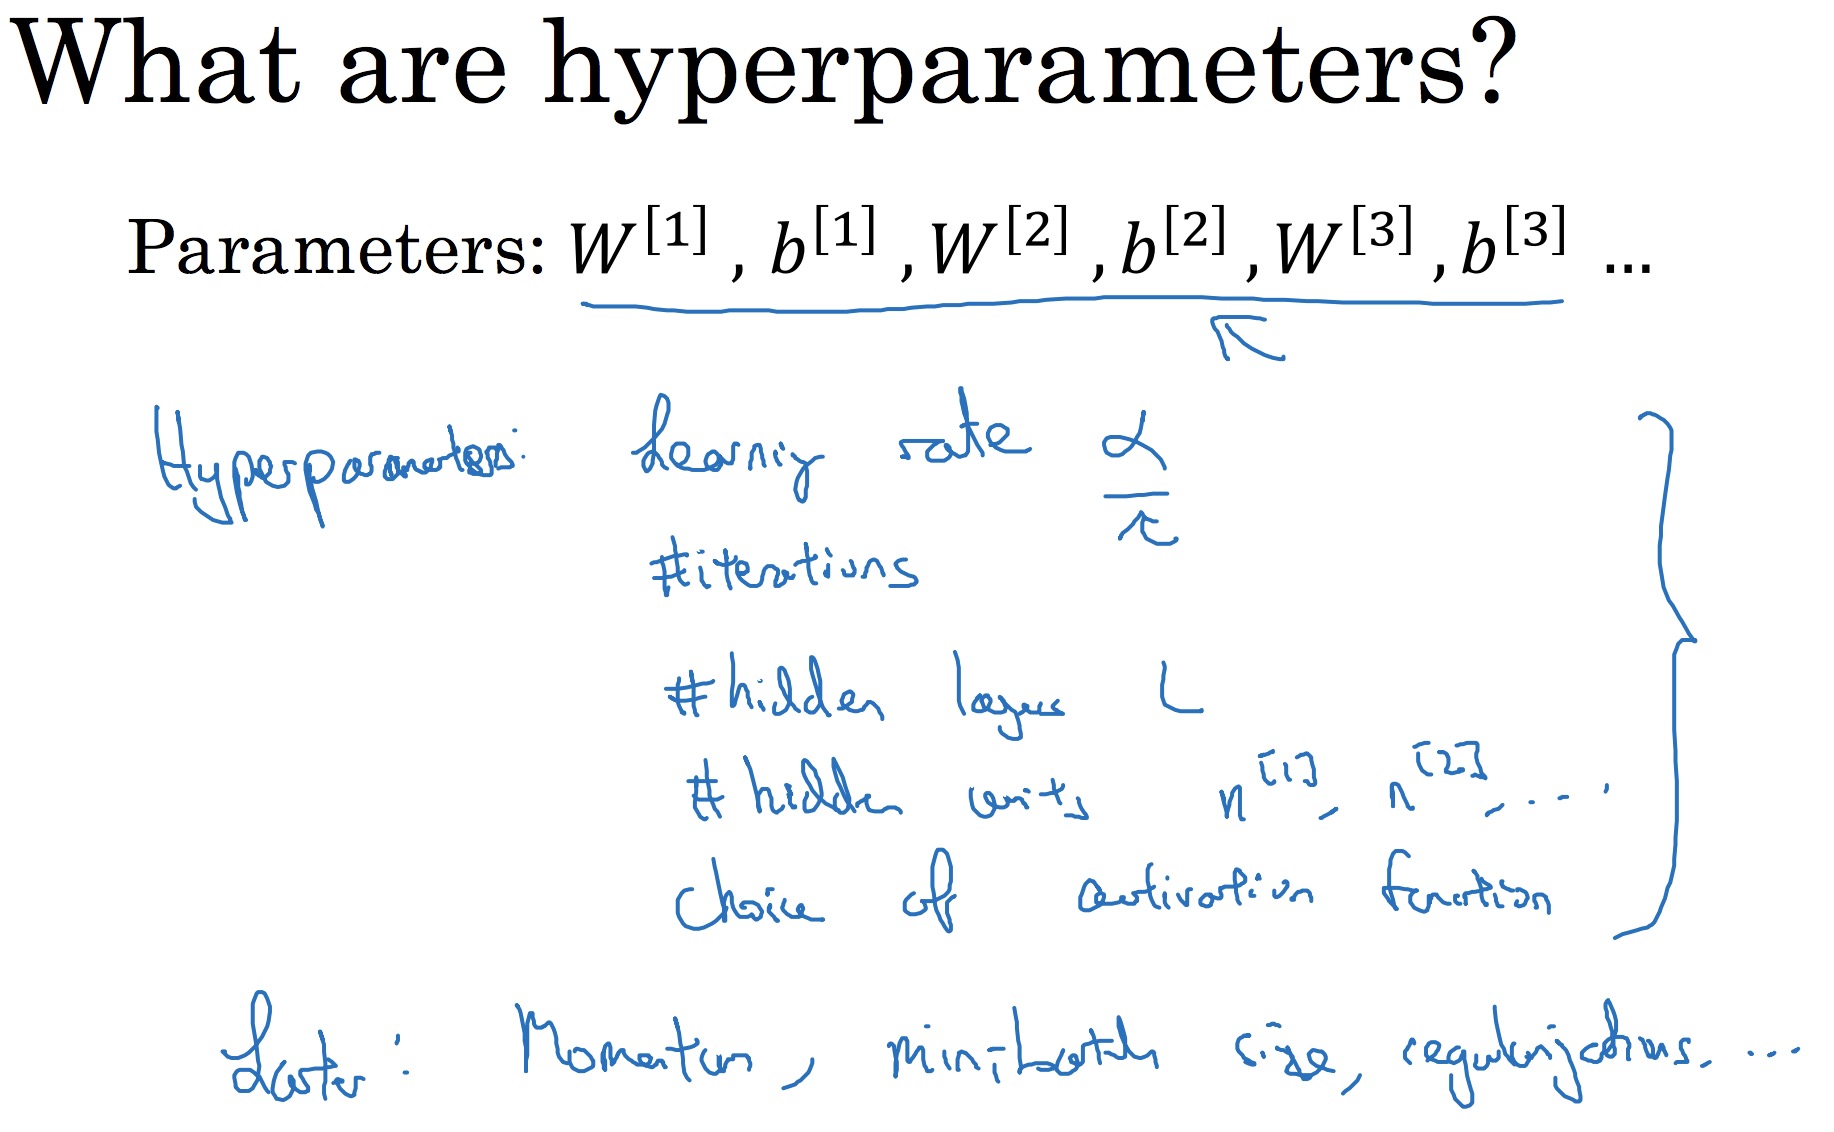 What are hyperparameters?
Parameters: W^[1] , b^[1] , W^[2] , b^[2] , W^[3] , b^[3] ...
Hyperparameters: Learning rate α
#iterations
#hidden layers L
# hidden units n^[1], n^[2], ....
choice of activation function
Later: Momentum, mini-batch size, regularizations, ...